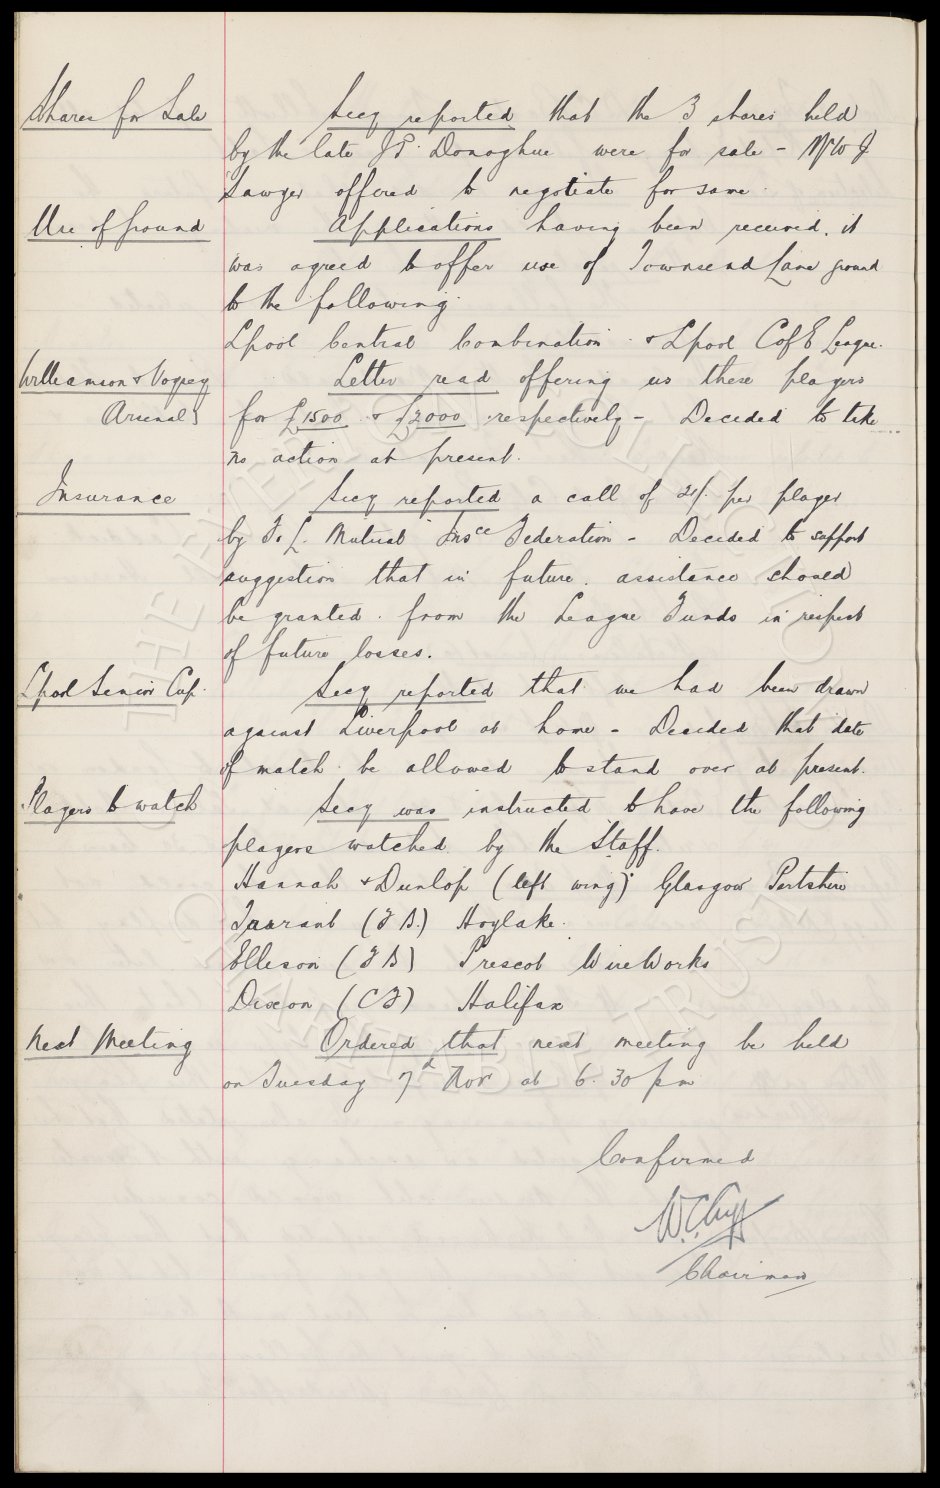 Shares for Sale
Secy reported that the 3 shares held
by the late J T Donoghue were for sale - Mr W J
Sawyer offered to negotiate for same.
Use of Ground
Applications having been received, it
was agreed to offer use of Townsend Lane ground
to the following:
Lpool Central Combination & Lpool C of E League.
Williamson & Voysey
Arsenal
Letter read offering us these players
for £1500 & £2000 respectively - Decided to take
no action at present.
Insurance
Secy reported a call of 21/- per player
by F. L. Mutual Insce Federation - Decided to support
suggestion that in future assistance should
be granted from the League Funds in respect
of future losses.
Lpool Senior Cup.
Secy reported that we had been drawn
against Liverpool at home - Decided that date
of match be allowed to stand over at present.
Players to watch
Secy was instructed to have the following
players watched by the Staff.
Hannah & Dunlop (left wing) Glasgow Pertshire
Tarrant (F B.) Hoylake.
Ellison (F B) Prescot WireWorks
Dixon (CF) Halifax
Next Meeting
Ordered that next meeting be held
on Tuesday 7d Nov at 6.30 pm
Confirmed
W.C.Cuff
Chairman
THE EVERTON COLLECTION
CHARITABLE TRUST